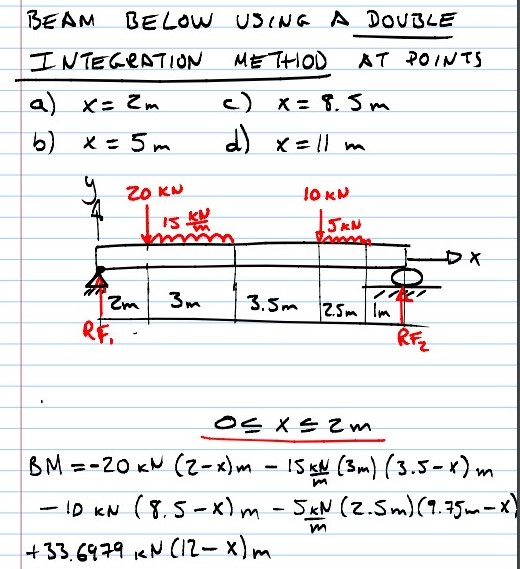 BEAM BELOW USING A DOUBLE
INTEGRATION METHOD AT POINTS
a) x = 2m c) x = 8.5m
b) x = 5m d) x = 11 m
y
20 KN 10 KN
15 KN/m 5KN
x
2m 3m 3.5m 2.5m 1m
RF₁ RF₂
0 ≤ x ≤ 2m
BM = -20 KN (2-x)m - 15 KN/m (3m)(3.5-x)m
- 10 KN (8.5-x)m - 5 KN/m (2.5m)(9.75m-x)
+33.6979 KN(12-x)m